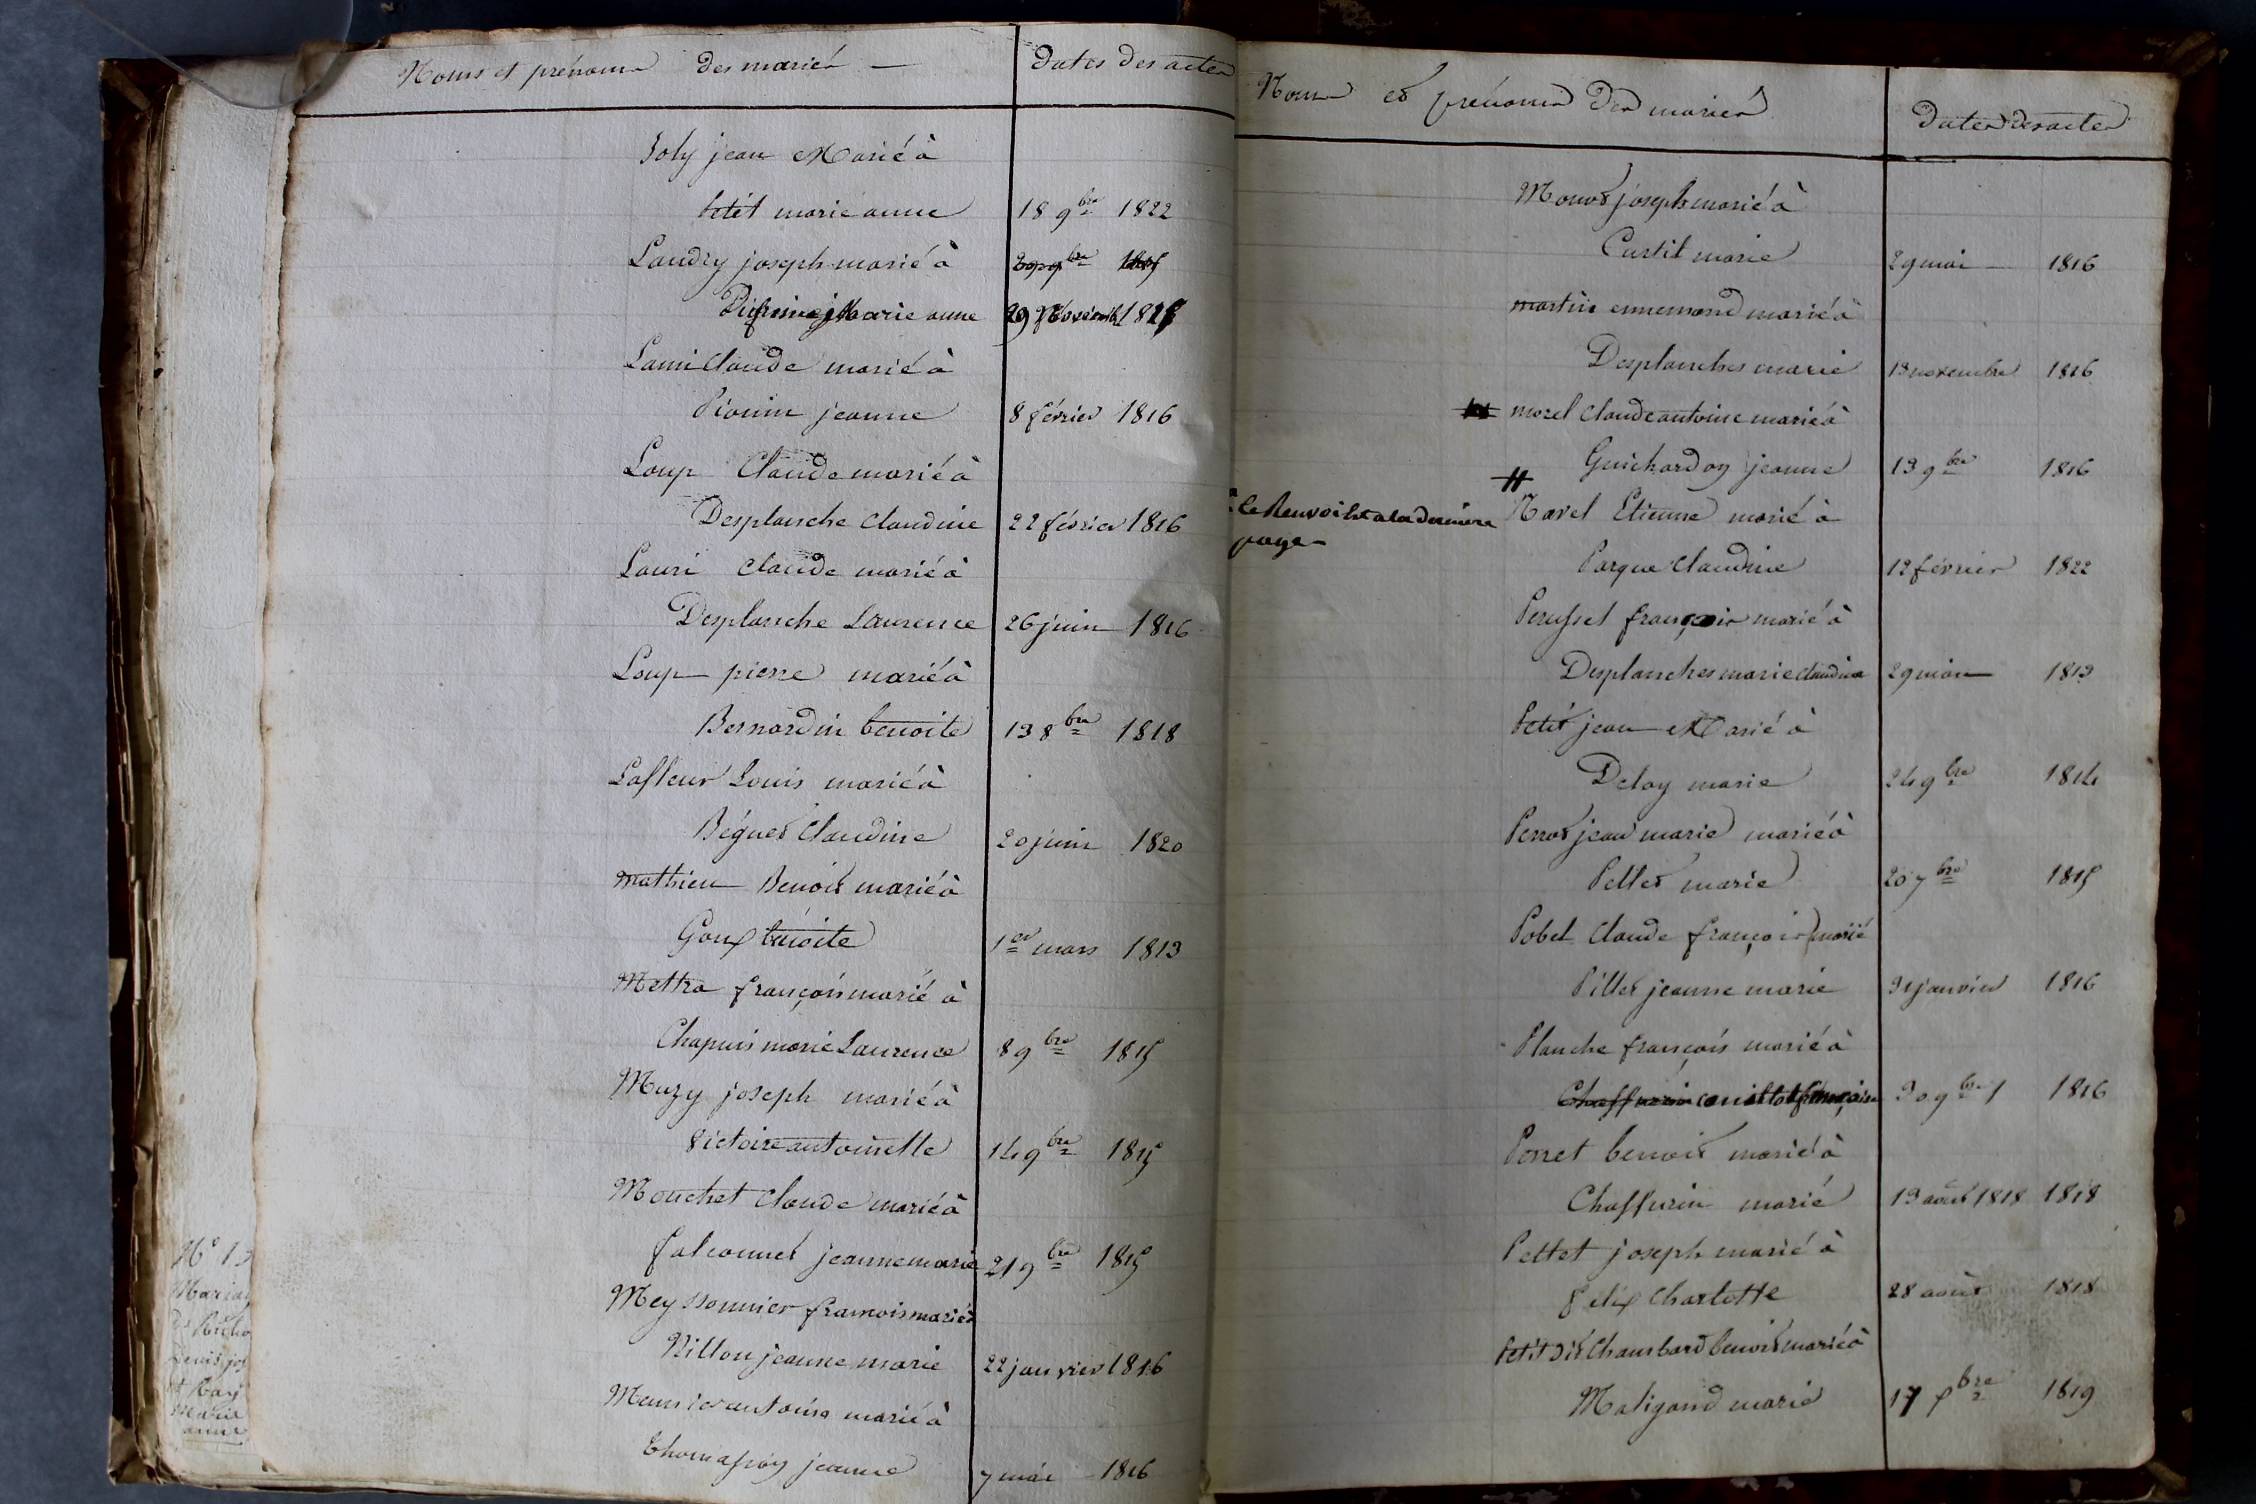 Noms et prénoms des mariés — Dates des actes
Joly jean Marié à
petit marie anne 18 9bre 1822
Landry joseph marié à
marie anne 29 Novembre
Lami Claude marié à
Pionin jeanne 8 février 1816
Loup Claude marié à
Desplanche Claudine 22 février 1816
Lauri Claude marié à
Desplanche Laurence 26 juin 1816
Loup pierre marié à
Bernardin benoite 13 8bre 1818
Lafleur Louis marié à
Béguet Claudine 20 juin 1820
Mathieu Benoit marié à
Goux benoite 1er mars 1813
Mettra françois marié à
Chapuis marie Laurence 8 9bre 1815
Muzy joseph marié à
Victoire antoinette 14 9bre 1815
Mouchet Claude marié à
falconnet jeanne marie 21 9bre 1815
Meyssonnier françois marié à
Nillon jeanne marie 22 janvier 1816
Meunier antoine marié à
Thomassoy jeanne 7 mai 1816
N° 13
Maria
Denis jos
et Ray
Marie
anne
Noms et prénoms des mariés Dates des actes
Monot joseph marié à
Curtil marie 29 mai 1816
martin ennemond marié à
Desplanches marie 13 novembre 1816
morel Claude antoine marié à
Guichardoy jeanne 13 9bre 1816
le Renvoi est a la derniere
page
Navel Etienne marié à
Parque Claudine 12 février 1822
Perusset françois marié à
Desplanches marie Claudine 29 1813
Petit jean Marié à
Deloy marie 24 9bre 1814
Perrot jean marie marié à
Pellet marie 20 7bre 1815
Pobel Claude françois marié
Pillet jeanne marie 31 janvier 1816
Planche françois marié à
Chaffurin couillot françoise 30 9bre 1816
Perret benoit marié à
Chaffurin marie 13 août 1818 1818
Pettet joseph marié à
felix Charlotte 28 août 1818
Petit dit Chambard benoit marié à
Maligand marie 17 bre 1819